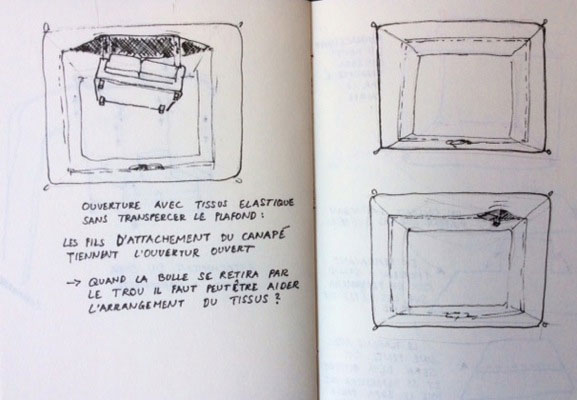 OUVERTURE AVEC TISSUS ELASTIQUE
SANS TRANSPERCER LE PLAFOND :
LES FILS D'ATTACHEMENT DU CANAPÉ
TIENNENT L'OUVERTUR OUVERT
→ QUAND LA BULLE SE RETIRA PAR
LE TROU IL FAUT PEUTÊTRE AIDER
L'ARRANGEMENT DU TISSUS ?